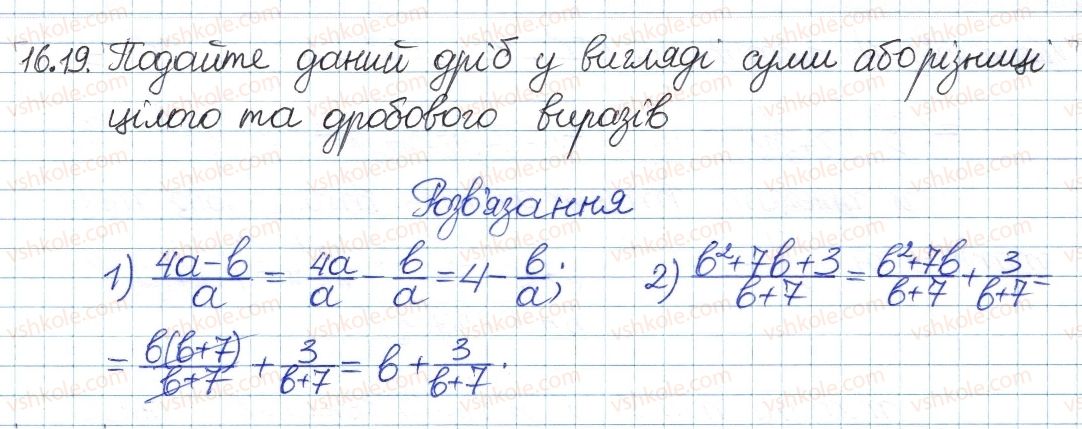 16.19. Подайте даний дріб у вигляді суми або різниці
цілого та дробового виразів
Розв'язання
1) \frac{4a-b}{a} = \frac{4a}{a} - \frac{b}{a} = 4 - \frac{b}{a}; 2) \frac{b^2+7b+3}{b+7} = \frac{b^2+7b}{b+7} + \frac{3}{b+7} =
= \frac{b(b+7)}{b+7} + \frac{3}{b+7} = b + \frac{3}{b+7}.